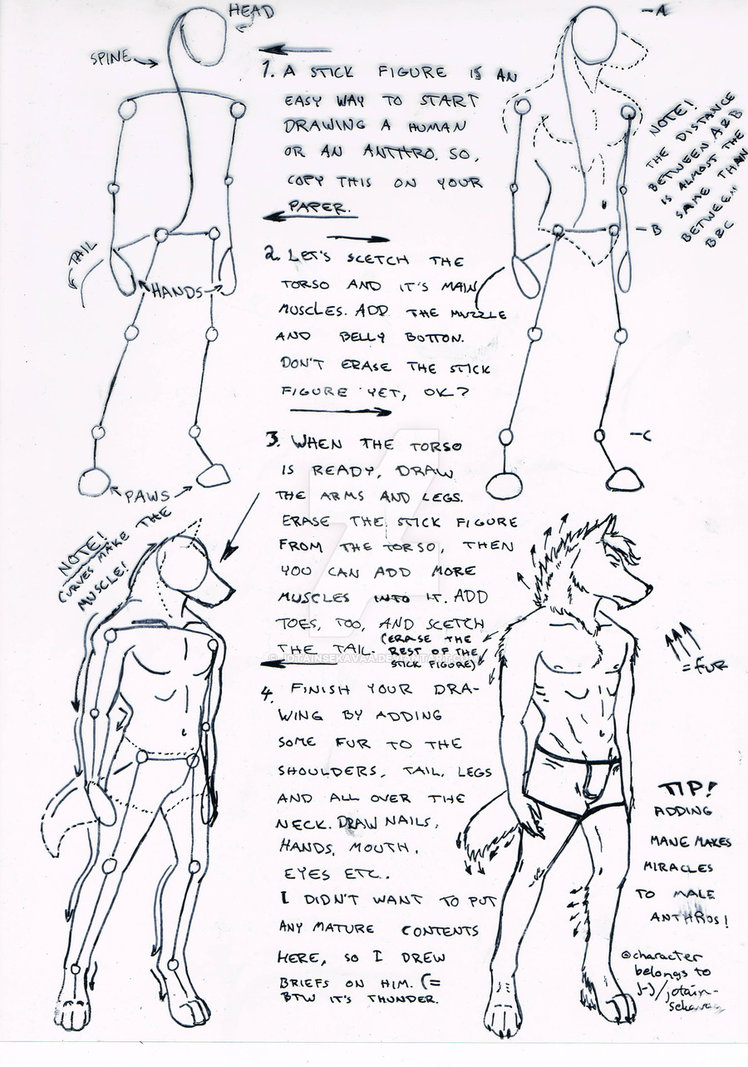 HEAD
SPINE
1. A STICK FIGURE IS AN
EASY WAY TO START
DRAWING A HUMAN
OR AN ANTHRO. SO,
COPY THIS ON YOUR
PAPER.
TAIL
HANDS
PAWS
- A
- B
- C
NOTE!
THE DISTANCE
BETWEEN A&B
IS ALMOST THE
SAME THAN
BETWEEN
B&C
2. LET'S SCETCH THE
TORSO AND IT'S MAIN
MUSCLES. ADD THE MUZZLE
AND BELLY BOTTON.
DON'T ERASE THE STICK
FIGURE YET, OK?
3. WHEN THE TORSO
IS READY, DRAW
THE ARMS AND LEGS.
ERASE THE STICK FIGURE
FROM THE TORSO, THEN
YOU CAN ADD MORE
MUSCLES INTO IT. ADD
TOES, TOO, AND SCETCH
THE TAIL. (ERASE THE
REST OF THE
STICK FIGURE)
NOTE!
CURVES MAKE THE
MUSCLE!
4. FINISH YOUR DRA-
WING BY ADDING
SOME FUR TO THE
SHOULDERS, TAIL, LEGS
AND ALL OVER THE
NECK. DRAW NAILS,
HANDS, MOUTH,
EYES ETC.
I DIDN'T WANT TO PUT
ANY MATURE CONTENTS
HERE, SO I DREW
BRIEFS ON HIM. (=
BTW IT'S THUNDER.
= FUR
TIP!
ADDING
MANE MAKES
MIRACLES
TO MALE
ANTHROS!
@character
belongs to
J-J/jotain-
sekavaa